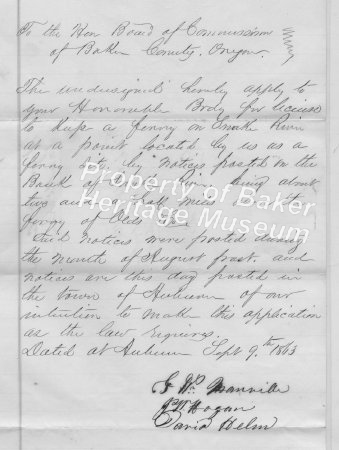 To the Hon Board of Commissioners
of Baker County, Oregon.
The undersigned hereby apply to
your Honorable Body for license
to keep a ferry on Snake River
at a point located by us as a
ferry site, by notices posted on the
Bank of River being about
two and half miles
ferry of Olds
Said notices were posted during
the month of August past. and
notices are this day posted in
the town of Auburn of our
intention to make this application
as the law requires.
Dated at Auburn Sept 9.th 1863
Hogan
David Helm
Property of Baker
Heritage Museum